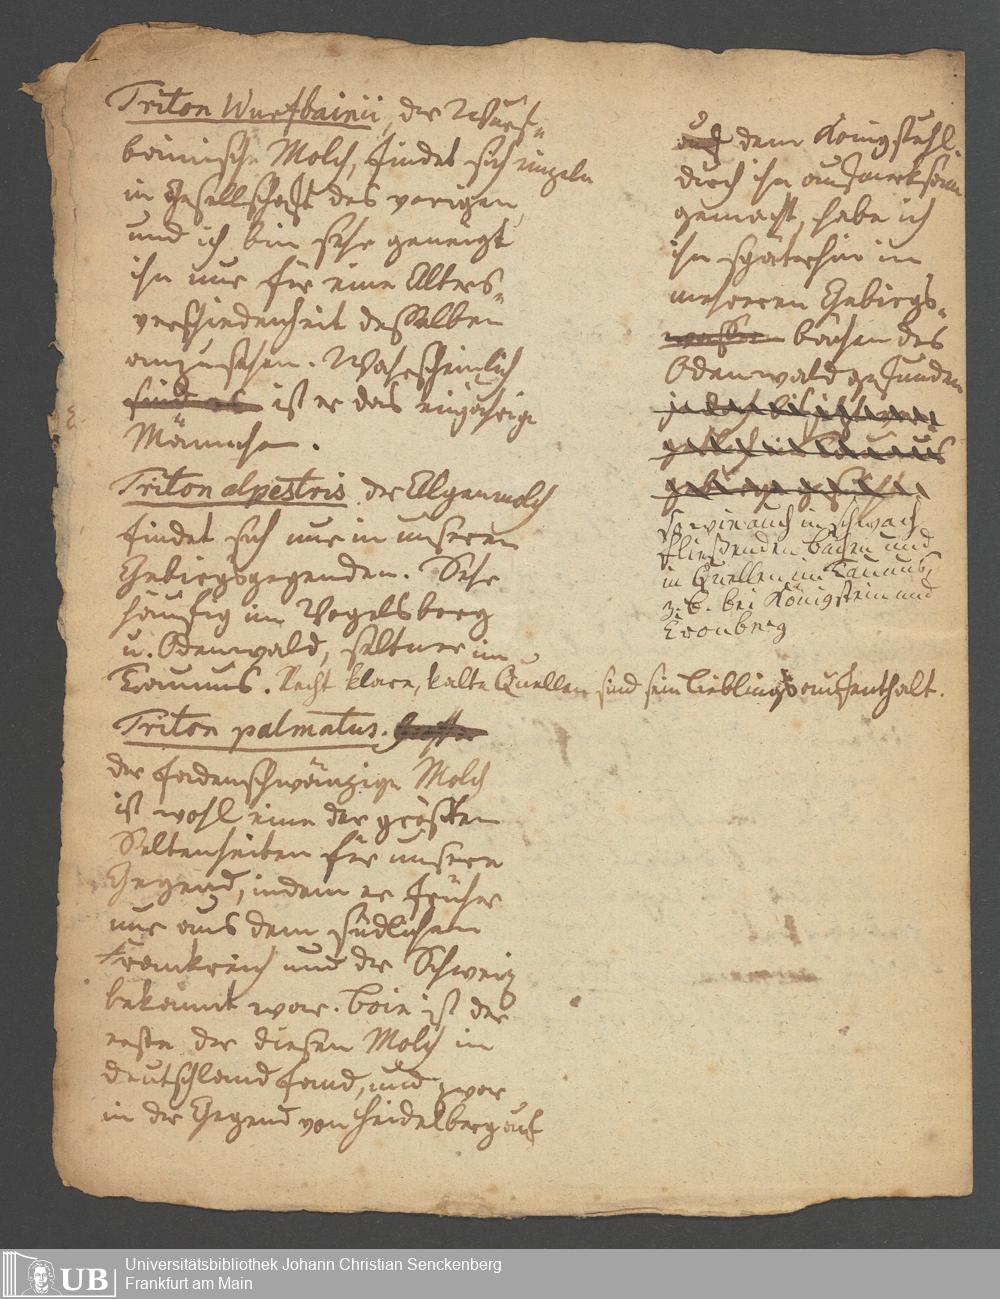 Triton Wurfbainii, der Wurf-
bainische Molch, findet sich einzeln
in Gesellschaft des vorigen,
und ich bin sehr geneigt
ihn nur für eine Alters-
verschiedenheit desselben
anzusehen. Wahrscheinlich
sind es ist er das einjährige
Männchen.
Triton alpestris der Alpenmolch
findet sich nur in unseren
Gebirgsgegenden. Sehr
häufig im Vogelsberg
u. Odenwald, seltner im
Taunus. Recht klare, kalte Quellen sind sein Lieblingsaufenthalt.
Triton palmatus.
der fadenschwänzige Molch
ist wohl eine der größten
Seltenheiten für unsere
Gegend, indem er früher
nur aus dem südlichen
Frankreich und der Schweiz
bekannt war. Boie ist der
erste der diesen Molch in
Deutschland fand, und zwar
in der Gegend von Heidelberg auf
auf dem Königstuhl.
durch ihn aufmerksam
gemacht, habe ich
ihn späterhin in
mehreren Gebirgs-
wasser bächen des
Odenwald gefunden
so wie auch in schwach
fließenden Bächen und
in Quellen im Taunus,
z. B. bei Königstein und
Cronberg
Universitätsbibliothek Johann Christian Senckenberg
Frankfurt am Main
UB